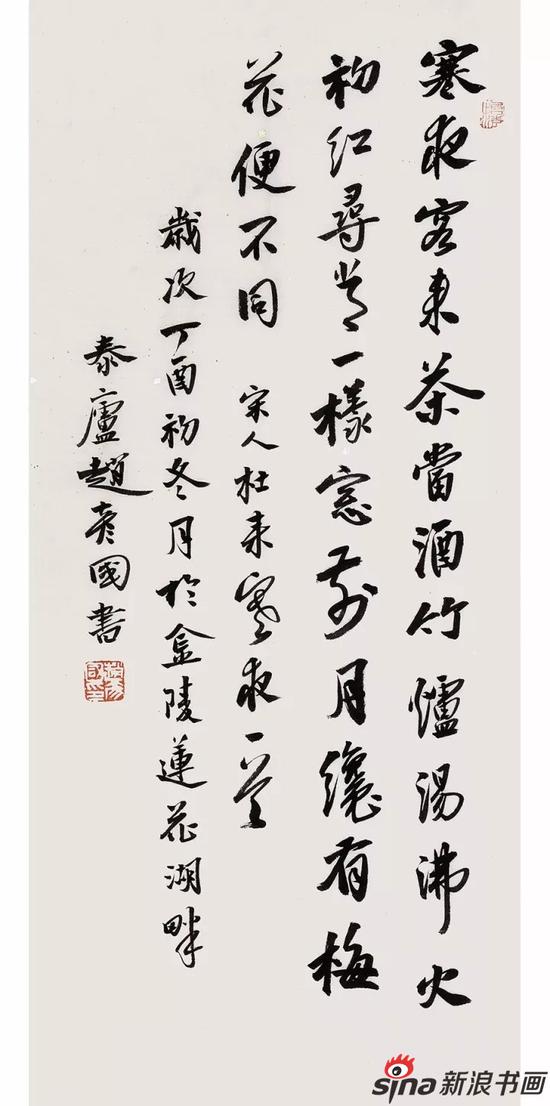 寒夜客来茶當酒竹爐湯沸火
初紅尋常一樣窓前月纔有梅
花便不同 宋人杜耒寒夜一首
歲次丁酉初冬月於金陵蓮花湖畔
泰廬趙彦國書
sina新浪书画